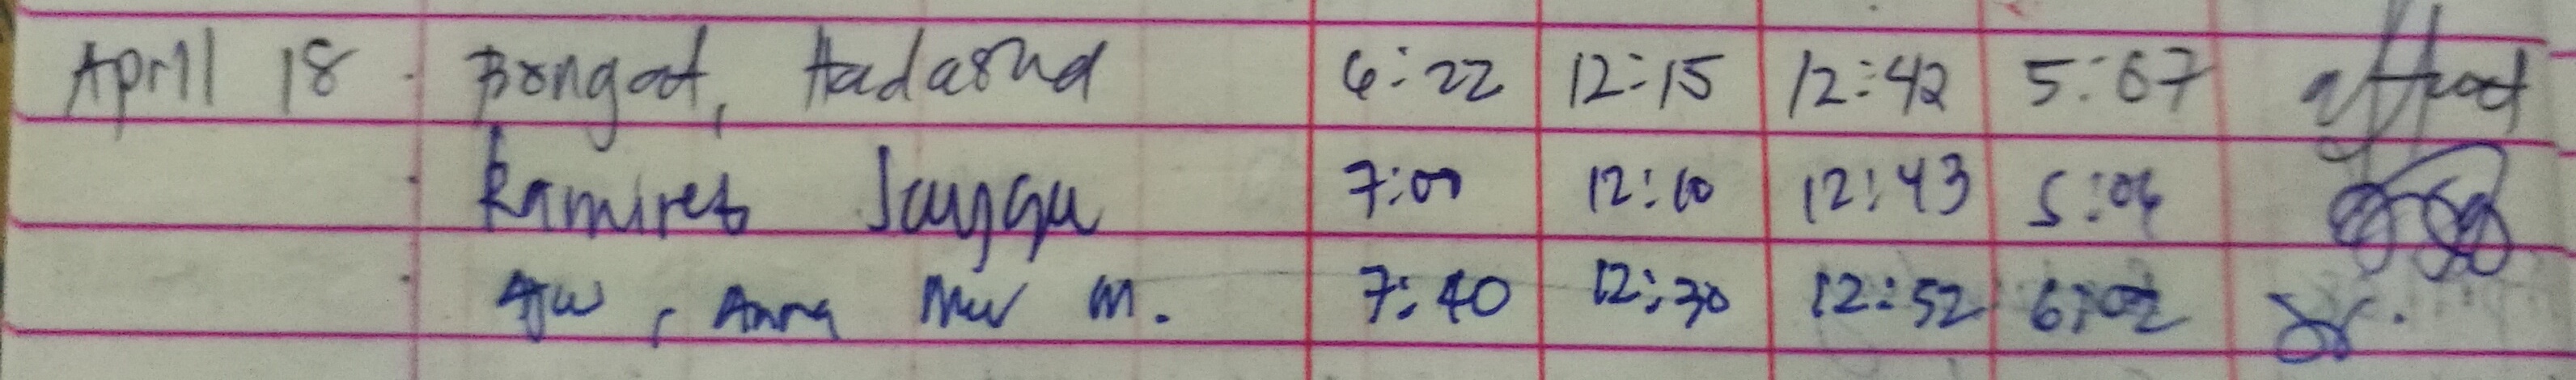 April 18 Bongat, Hadasha 6:22 12:15 12:42 5:07
Ramirez 7:00 12:10 12:43 5:04
Anna M. 7:40 12:30 12:52 6:02